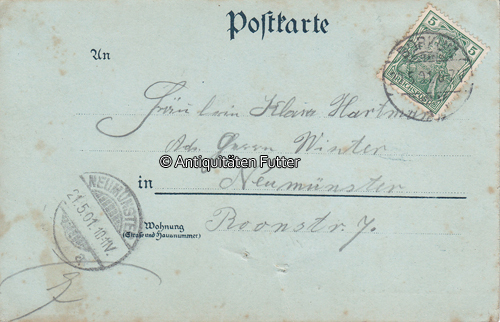 Postkarte
5 5
An
Fräulein Klara Hartmann
Adr. Herrn Winter
© Antiquitäten Futter
in Neumünster
Wohnung
(Straße und Hausnummer)
Roonstr. 7.
NEUMÜNSTER
21.5.01. 10-11V.